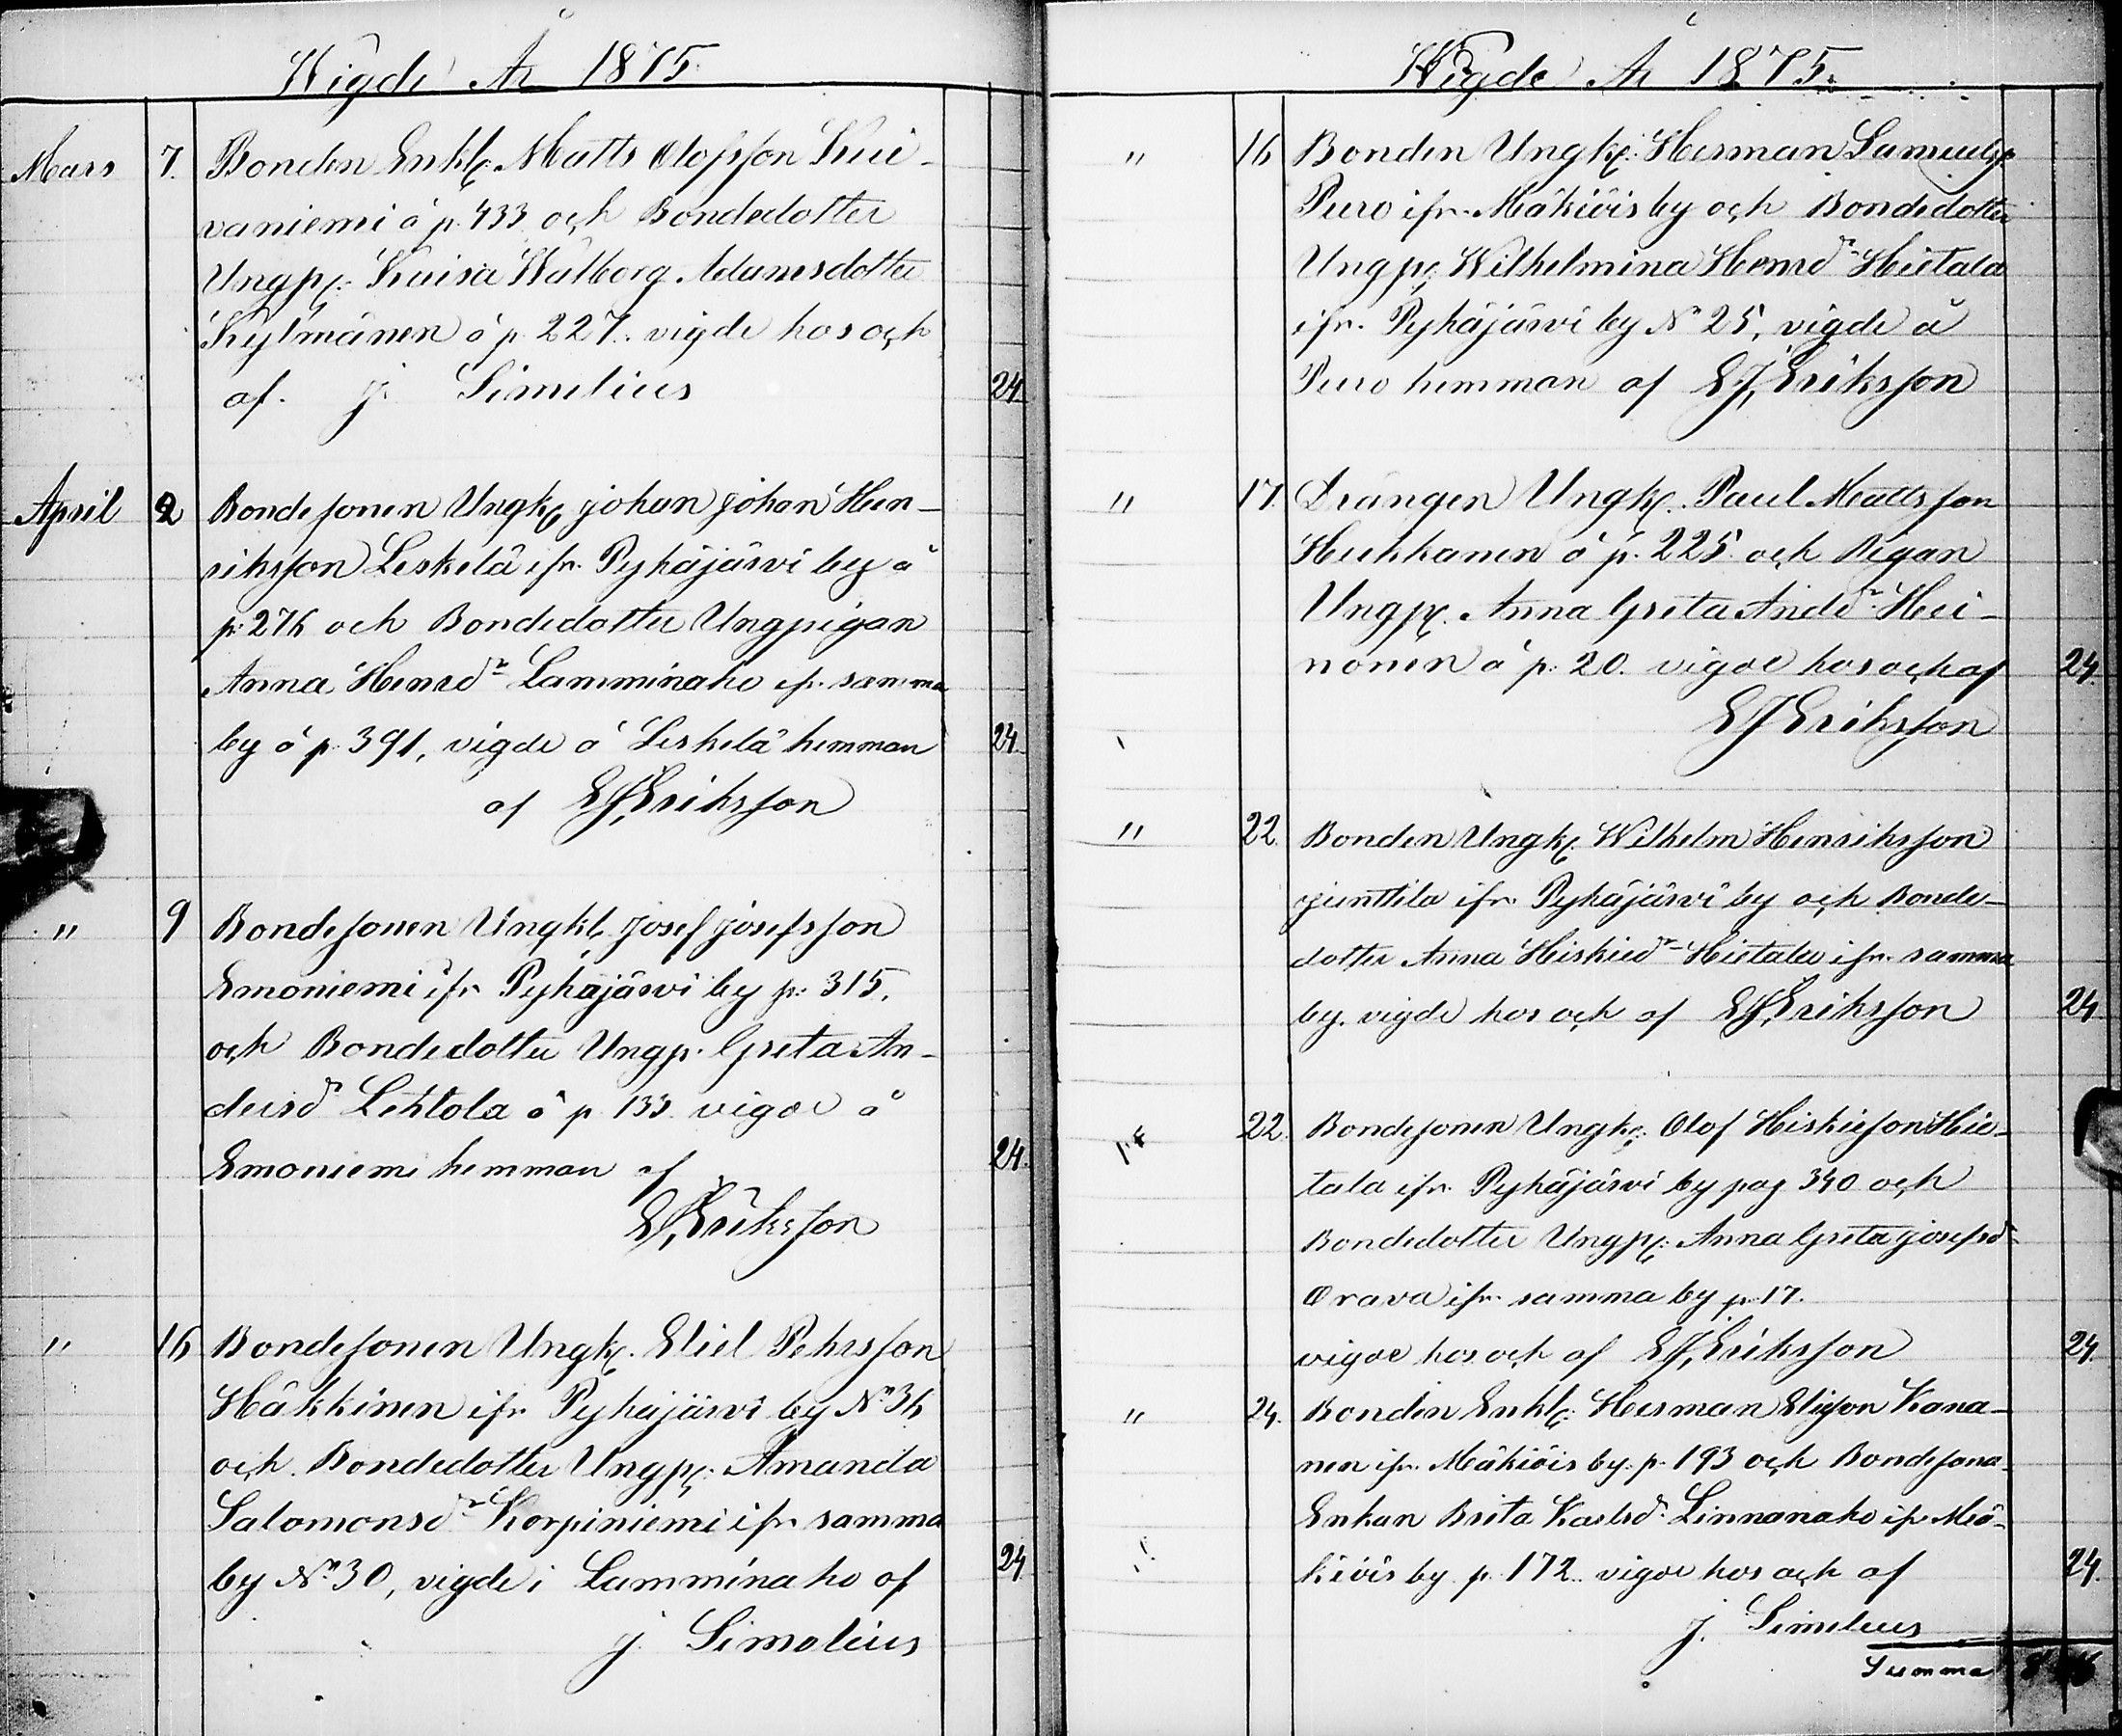 Wigde År 1875
Mars 7. Bonden Enkl. Matts Olofsson Kui-
vaniemi å p. 433 och Bondedotter
Ungp. Kaisa Walborg Adamsdotter
Kylmänen å p. 227. vigde hos och
af. J. Simelius 24.
April 2 Bondesonen Ungk. Johan Johan Hen-
riksson Leskelä ifr. Pyhäjärvi by å
p. 276 och Bondedotter Ungpigan
Anna Henrsdr Lamminaho ifr. samma
by å p. 391, vigde å Leskelä hemman 24.
af E J Eriksson
" 9 Bondesonen Ungkl. Josef Josefsson
Emoniemi ifr Pyhäjärvi by p. 315.
och Bondedotter Ungp. Greta An-
dersdr Lehtola å p 133. vigde å
Emoniemi hemman af 24.
E J Eriksson
" 16 Bondesonen Ungk. Eliel Pehrsson
Häkkinen ifr Pyhäjärvi by No 36
och Bondedotter Ungp. Amanda
Salomonsdr Korpiniemi ifr samma
by No 30, vigde i Lamminaho af 24
J. Simelius
Wigde År 1875.
" 16 Bonden Ungk. Herman Samuelss.
Puro ifr. Mäkiöis by och Bondedotter
Ungp. Wilhelmina Henrsdr Hietala
ifr. Pyhäjärvi by No 25, vigde å
Puro hemman af E J Eriksson
" 17. Drängen Ungk. Paul Mattsson
Heikkanen å p. 225. och Pigan
Ungp. Anna Greta Anddr. Hei-
nonen å p. 20. vigde hos och af 24.
E J Eriksson
" 22. Bonden Ungk. Wilhelm Henriksson
Junttila ifr. Pyhäjärvi by och Bonde-
dotter Anna Hiskiedr Hietala ifr. samma
by. vigde hos och af E J Eriksson 24
22. Bondesonen Ungk. Olof Hiskieson Hie-
tala ifr. Pyhäjärvi by pag 340 och
Bondedotter Ungp. Anna Greta Josefsdr
Orava ifr. samma by p. 17.
vigde hos och af E J Eriksson 24.
" 24. Bonden Enkl. Herman Elisson Kana-
nen ifr. Mäkiöis by. p. 193 och Bondesona-
Enkan Brita Karlsdr. Linnanaho ifr Mä-
kiöis by p. 172. vigde hos och af 24.
J. Simelius
Summa